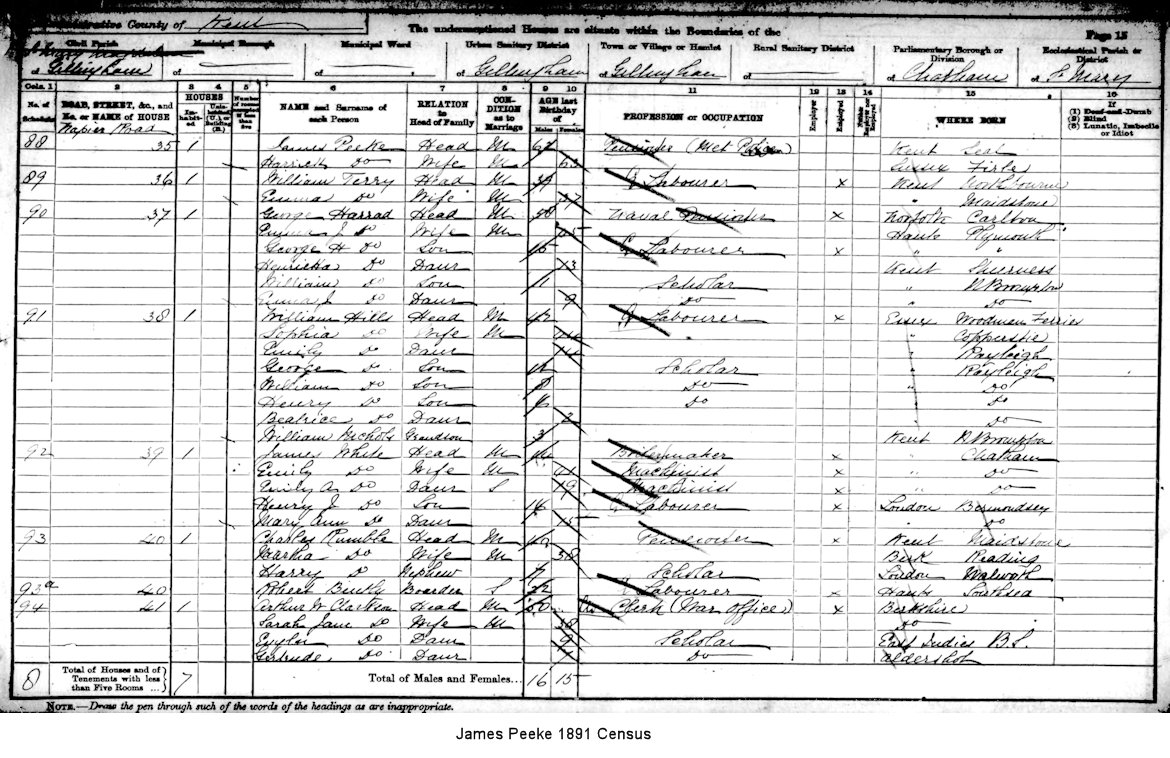 Administrative County of Kent
The undermentioned Houses are situate within the Boundaries of the
Page 15
Civil Parish
of Gillingham
Municipal Borough
of
Municipal Ward
of
Urban Sanitary District
of Gillingham
Town or Village or Hamlet
of Gillingham
Rural Sanitary District
of
Parliamentary Borough or Division
of Chatham
Ecclesiastical Parish or District
of St Mary
Cols. 1 2 3 4 5 6 7 8 9 10 11 12 13 14 15 16
No. of Schedule
ROAD, STREET, &c., and No. or NAME of HOUSE
HOUSES
Inhabited
NAME and Surname of each Person
RELATION to Head of Family
CONDITION as to Marriage
AGE last Birthday of
Males Females
PROFESSION or OCCUPATION
Employer
Employed
WHERE BORN
If
(1) Deaf-and-Dumb
(2) Blind
(3) Lunatic, Imbecile or Idiot
Napier Road
88 35 1 James Peeke Head M 67 Pensioner (Met Police) Kent Seal
Harriett Do Wife M 63 Sussex Firle
89 36 1 William Terry Head M 39 Labourer x Kent
Emma Do Wife M 37 " Maidstone
90 37 1 George Harrad Head M 58 Naval Pensioner x Norfolk Carlton
Emma J Do Wife M Hants Plymouth
George H Do Son Labourer x " "
Henrietta Do Daur 13 Kent Sheerness
William Do Son 11 Scholar " N Brompton
Emma J Do Daur 9 Do " Do
91 38 1 William Hills Head M 42 Labourer x Essex Woodman Ferries
Sophia Do Wife M "
Emily Do Daur 14 " Rayleigh
George Do Son Scholar " Rayleigh
William Do Son 8 Do " Do
Henry Do Son 6 Do Do
Beatrice Do Daur 2 Do
William Nichols Grandson 3 Kent N Brompton
92 39 1 James White Head M 44 Boilermaker x " Chatham
Emily Do Wife M 41 Machinist x " Do
Emily A Do Daur S 19 Machinist x " Do
Henry J Do Son Labourer x London Bermondsey
Mary Ann Do Daur 15 " Do
93 40 1 Charles Rumble Head M Pensioner x Kent Maidstone
Martha Do Wife M 38 Berk Reading
Harry Do Nephew 7 Scholar London Walworth
93a 40 Robert Boarder S Labourer x Hants Southsea
94 41 1 Arthur W Clarkson Head M Clerk (War Office) x Berkshire
Sarah Jane Do Wife M 38 Do
Do Daur 9 Scholar East Indies B.S.
Gertrude Do Daur Do Aldershot
8 Total of Houses and of Tenements with less than Five Rooms ... 7 Total of Males and Females... 16 15
NOTE.—Draw the pen through such of the words of the headings as are inappropriate.
James Peeke 1891 Census